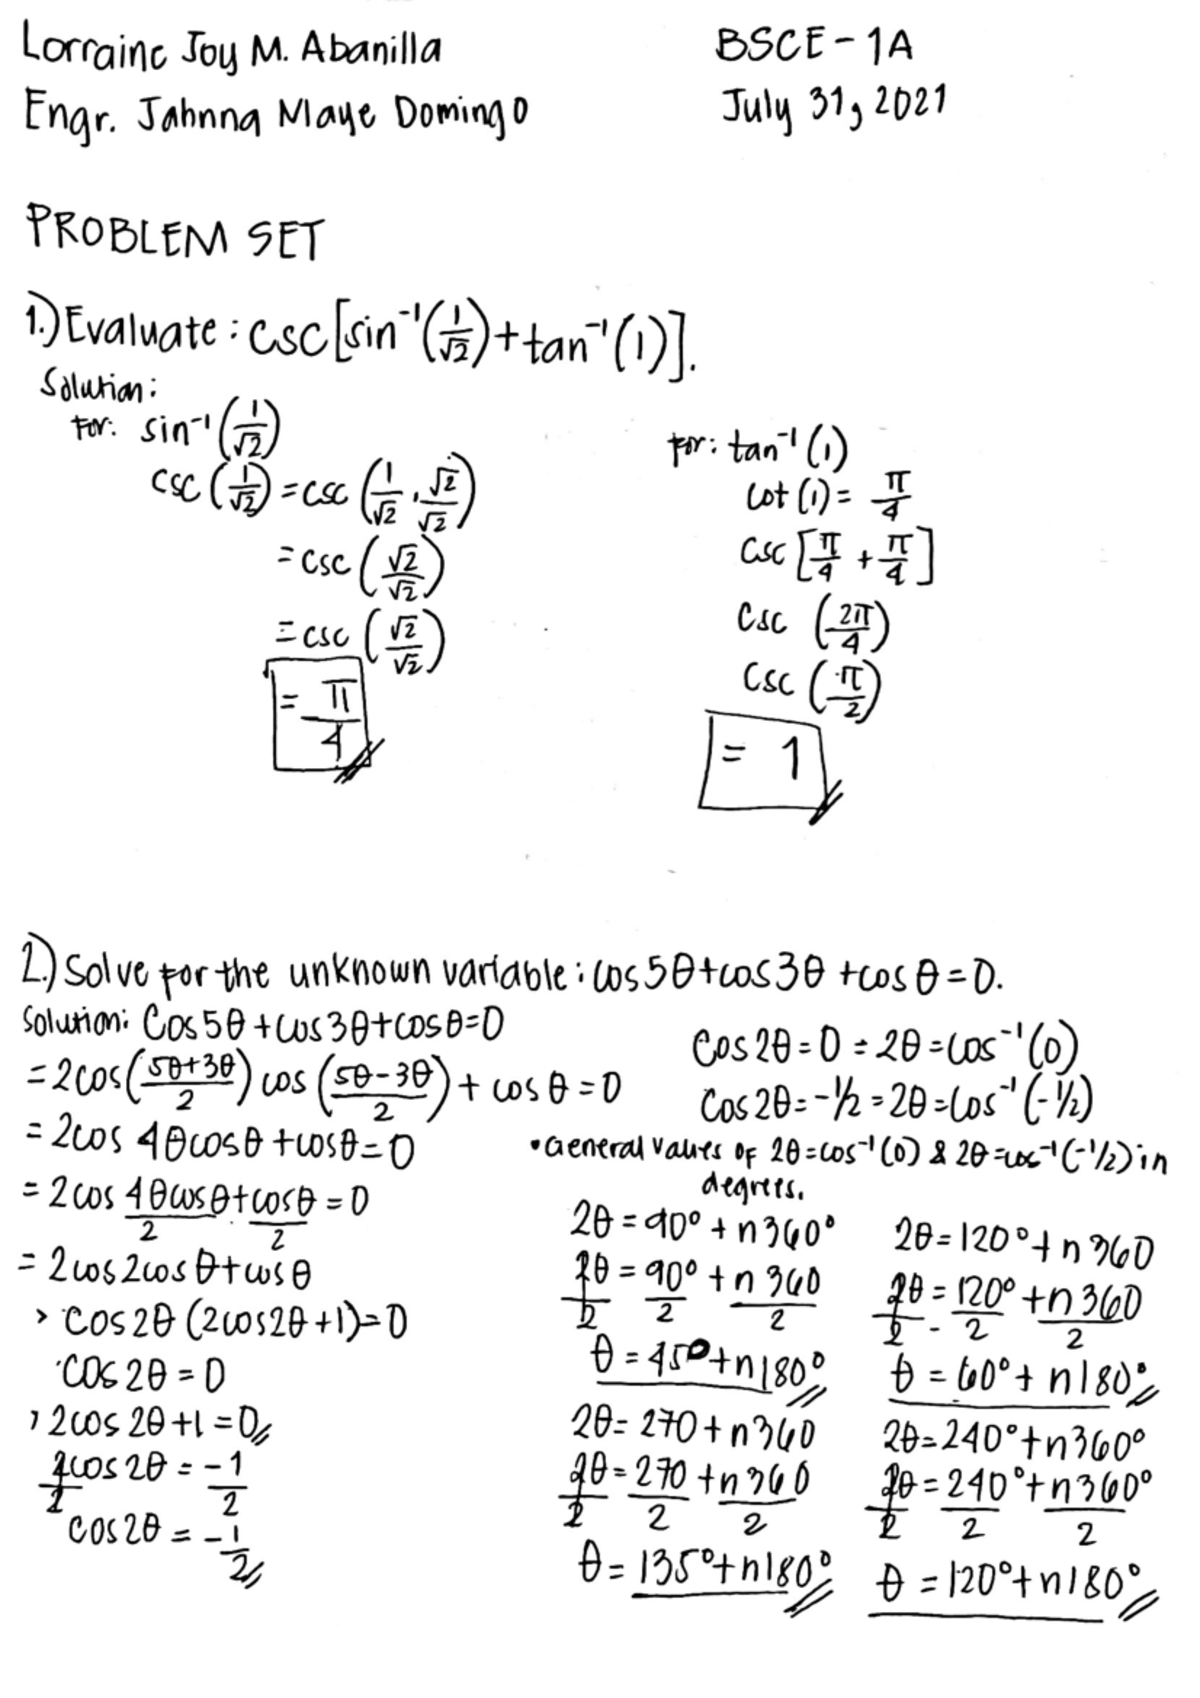 Lorraine Joy M. Abanilla BSCE-1A
Engr. Jahnna Maye Domingo July 31, 2021
PROBLEM SET
1.) Evaluate: csc[sin⁻¹(1/√2)+tan⁻¹(1)].
Solution:
For: sin⁻¹(1/√2)
csc(1/√2)=csc(1/√2·√2/√2)
=csc(√2/√2)
=csc(√2/√2)
=π/4
For: tan⁻¹(1)
cot(1)=π/4
csc[π/4+π/4]
csc(2π/4)
csc(π/2)
=1
2.) Solve for the unknown variable: cos5θ+cos3θ+cosθ=0.
Solution: Cos5θ+cos3θ+cosθ=0
=2cos(5θ+3θ/2)cos(5θ-3θ/2)+cosθ=0
=2cos4θcosθ+cosθ=0
=2cos4θcosθ/2+cosθ/2=0
=2cos2cosθ+cosθ
> cos2θ(2cos2θ+1)=0
cos2θ=0
, 2cos2θ+1=0
2cos2θ/2=-1/2
cos2θ=-1/2
Cos2θ=0=2θ=cos⁻¹(0)
Cos2θ=-1/2=2θ=cos⁻¹(-1/2)
•General values of 2θ=cos⁻¹(0) & 2θ=cos⁻¹(-1/2) in
degrees.
2θ=90°+n360°
2θ/2=90°/2+n360/2
θ=45°+n180°
2θ=270+n360
2θ/2=270/2+n360/2
θ=135°+n180°
2θ=120°+n360
2θ/2=120°/2+n360/2
θ=60°+n180°
2θ=240°+n360°
2θ/2=240°/2+n360°/2
θ=120°+n180°